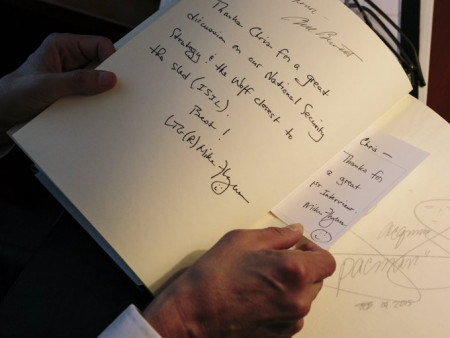 Thanks Chris for a great
discussion on our National Security
Strategy & the Wolf closest to
the sled (ISIL).
LTG(R) Mike Flynn
Chris —
Thanks for
a great
Interview.
Mike Flynn
pacman